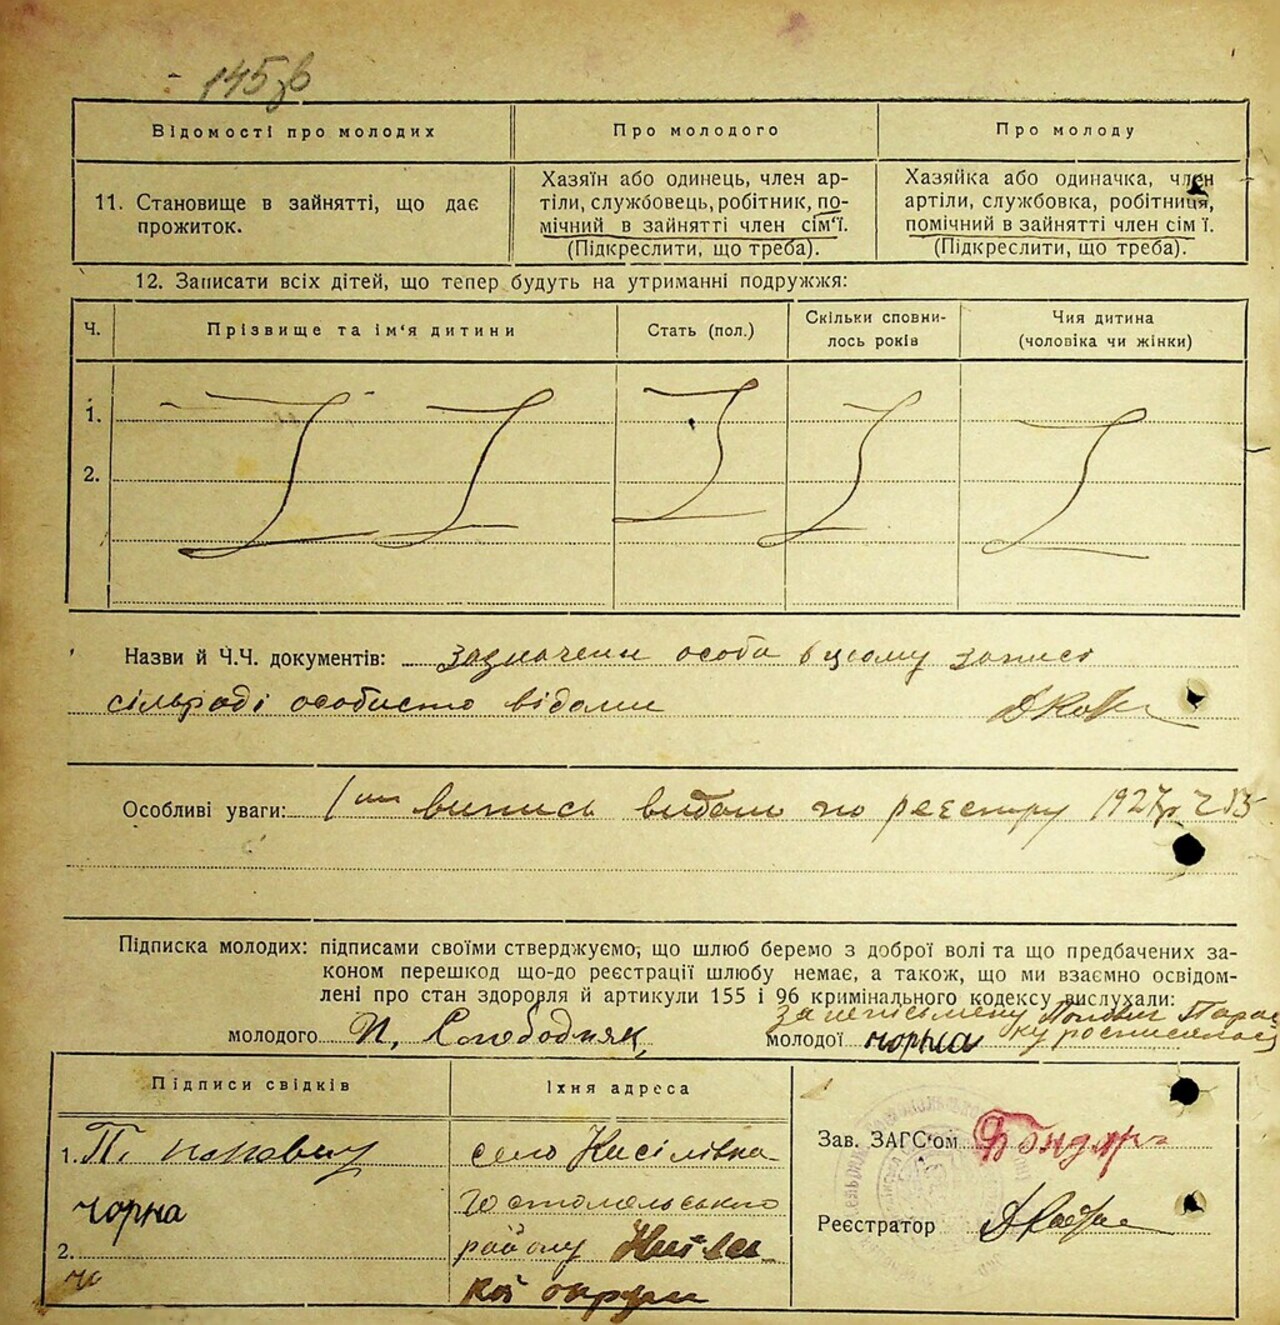 145зв
Відомості про молодих
Про молодого
Про молоду
11. Становище в зайнятті, що дає
прожиток.
Хазяїн або одинець, член ар-
тіли, службовець, робітник, по-
мічний в зайнятті член сім'ї.
(Підкреслити, що треба).
Хазяйка або одиначка, член
артіли, службовка, робітниця,
помічний в зайнятті член сім'ї.
(Підкреслити, що треба).
12. Записати всіх дітей, що тепер будуть на утриманні подружжя:
Ч.
Прізвище та ім'я дитини
Стать (пол.)
Скільки сповни-
лось років
Чия дитина
(чоловіка чи жінки)
1.
2.
Назви й Ч.Ч. документів: зазначени особи в цьому записі
сільраді особисто відоми
Особливі уваги: випись видано по реєстру 1927р
Підписка молодих: підписами своїми стверджуємо, що шлюб беремо з доброї волі та що предбачених за-
коном перешкод що-до реєстрації шлюбу немає, а також, що ми взаємно освідом-
лені про стан здоровля й артикули 155 і 96 кримінального кодексу вислухали:
за неписьмену Попович Парас
молодого П. Слободняк
молодої чорна ку росписалась
Підписи свідків
Їхня адреса
1. П. попович
чорна
2.
село Кисілівка
Гостомельського
району Київсь
кої округи
Зав. ЗАГС'ом Бондар
Реєстратор